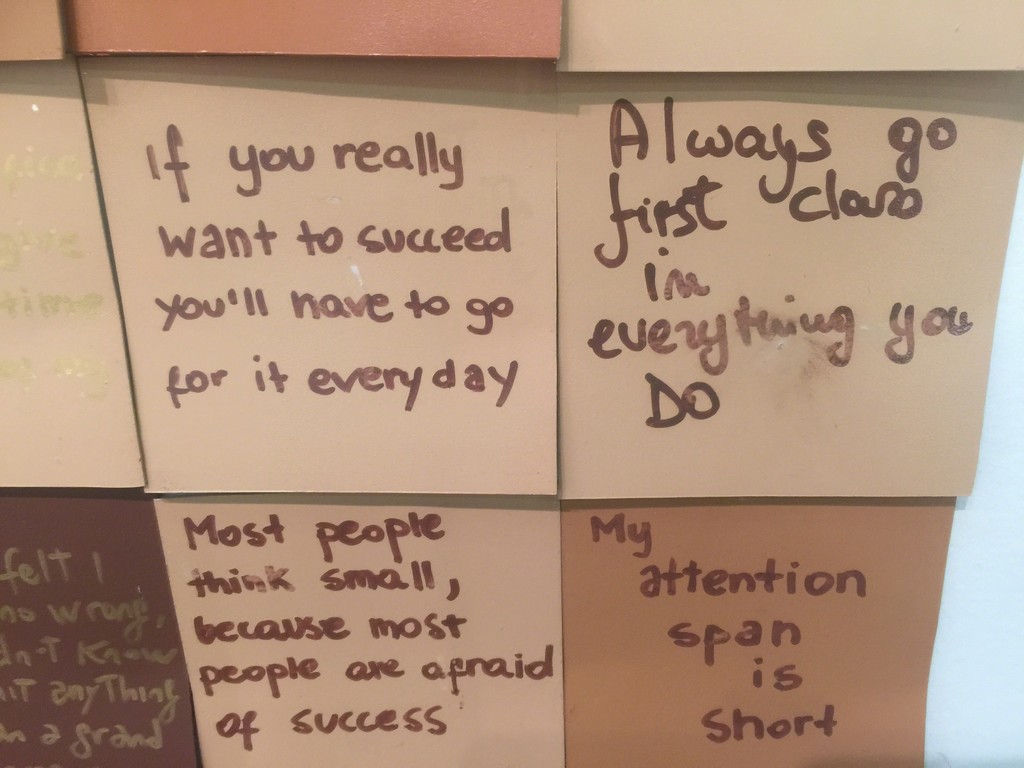 If you really
want to succeed
you'll have to go
for it every day
Always go
first class
in
everything you
DO
Most people
think small,
because most
people are afraid
of success
My
attention
span
is
short
time
felt I
no wrong,
know
anything
a grand